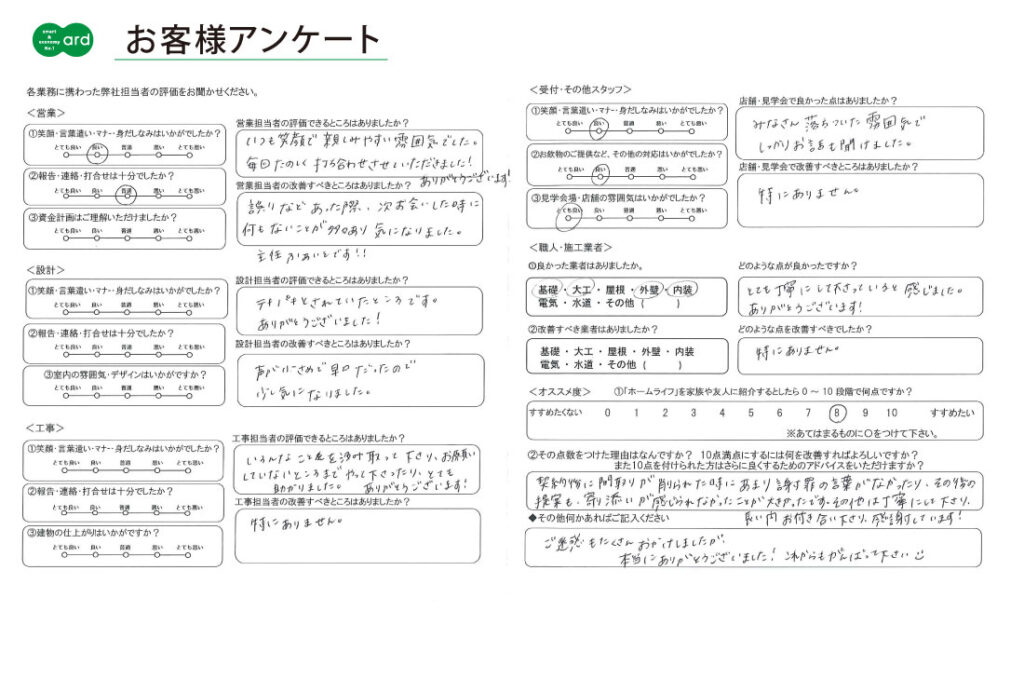 smart
&
economy
No.1
ard
お客様アンケート
各業務に携わった弊社担当者の評価をお聞かせください。
＜営業＞
①笑顔・言葉遣い・マナー・身だしなみはいかがでしたか？
とても良い 良い 普通 悪い とても悪い
②報告・連絡・打合せは十分でしたか？
とても良い 良い 普通 悪い とても悪い
③資金計画はご理解いただけましたか？
とても良い 良い 普通 悪い とても悪い
営業担当者の評価できるところはありましたか？
いつも笑顔で親しみやすい雰囲気でした。
毎回たのしく打ち合わせさせていただきました！
ありがとうございます！
営業担当者の改善すべきところはありましたか？
誤りなどあった際、次お会いした時に
何もないことが多々あり気になりました。
主任ふぁいとです！！
＜設計＞
①笑顔・言葉遣い・マナー・身だしなみはいかがでしたか？
とても良い 良い 普通 悪い とても悪い
②報告・連絡・打合せは十分でしたか？
とても良い 良い 普通 悪い とても悪い
③室内の雰囲気・デザインはいかがですか？
とても良い 良い 普通 悪い とても悪い
設計担当者の評価できるところはありましたか？
テキパキとされていたところです。
ありがとうございました！
設計担当者の改善すべきところはありましたか？
声が小さめで早口だったので
少し気になりました。
＜工事＞
①笑顔・言葉遣い・マナー・身だしなみはいかがでしたか？
とても良い 良い 普通 悪い とても悪い
②報告・連絡・打合せは十分でしたか？
とても良い 良い 普通 悪い とても悪い
③建物の仕上がりはいかがですか？
とても良い 良い 普通 悪い とても悪い
工事担当者の評価できるところはありましたか？
いろんなことを汲み取って下さり、お願い
していないところまでやって下さったり、とても
助かりました。 ありがとうございます！
工事担当者の改善すべきところはありましたか？
特にありません。
＜受付・その他スタッフ＞
①笑顔・言葉遣い・マナー・身だしなみはいかがでしたか？
とても良い 良い 普通 悪い とても悪い
②お飲物のご提供など、その他の対応はいかがでしたか？
とても良い 良い 普通 悪い とても悪い
③見学会場・店舗の雰囲気はいかがでしたか？
とても良い 良い 普通 悪い とても悪い
店舗・見学会で良かった点はありましたか？
みなさん落ちついた雰囲気で
しっかりお話も聞けました。
店舗・見学会で改善すべきところはありましたか？
特にありません。
＜職人・施工業者＞
①良かった業者はありましたか。
基礎 ・ 大工 ・ 屋根 ・ 外壁 ・ 内装
電気 ・ 水道 ・ その他（ ）
どのような点が良かったですか？
とても丁寧にして下さっていると感じました。
ありがとうございます！
②改善すべき業者はありましたか？
基礎 ・ 大工 ・ 屋根 ・ 外壁 ・ 内装
電気 ・ 水道 ・ その他（ ）
どのような点を改善すべきでしたか？
特にありません。
＜オススメ度＞ ①「ホームライフ」を家族や友人に紹介するとしたら 0 ～ 10 段階で何点ですか？
すすめたくない 0 1 2 3 4 5 6 7 8 9 10 すすめたい
※あてはまるものに〇をつけて下さい。
②その点数をつけた理由はなんですか？ 10点満点にするには何を改善すればよろしいですか？
また10点を付けられた方はさらに良くするためのアドバイスをいただけますか？
契約後に間取りが削られた時にあまり謝罪の言葉がなかったり、その後の
提案も、寄り添いが感じられなかったことが大きかったです。その他は丁寧にして下さり、
長い内お付き合い下さり、感謝しています！
◆その他何かあればご記入ください
ご迷惑もたくさんおかけしましたが、
本当にありがとうございました！これからもがんばって下さい